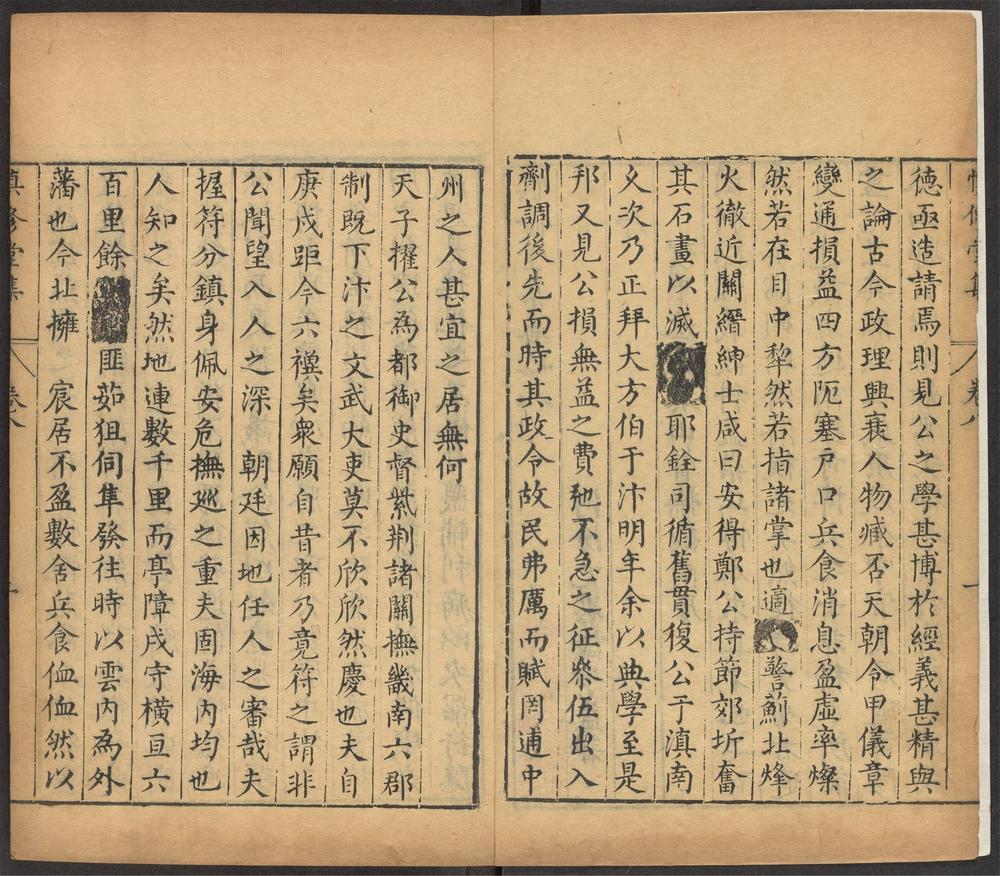 德亟造請焉則見公之學甚博於經義甚精與
之論古今政理興衰人物臧否天朝令甲儀章
變通損益四方阨塞戶口兵食消息盈虛率燦
然若在目中犂然若指諸掌也適警薊北烽
火徹近關縉紳士咸曰安得鄭公持節郊圻奮
其石畫以滅耶銓司循舊貫復公于滇南
乂次乃正拜大方伯于汴明年余以典學至是
邦又見公損無益之費弛不急之征叅伍出入
劑調後先而時其政令故民弗厲而賦罔逋中
州之人甚宜之居無何
天子擢公為都御史督紫荆諸關撫畿南六郡
制既下汴之文武大吏莫不欣欣然慶也夫自
庚戌距今六禩矣衆願自昔者乃竟符之謂非
公聞望入人之深朝廷因地任人之審哉夫
握符分鎮身佩安危撫廵之重夫固海内均也
人知之矣然地連數千里而亭障戍守橫亘六
百里餘匪茹狙伺隼發往時以雲内為外
藩也今北擁宸居不盈數舍兵食衁衁然以
卷八
卷八